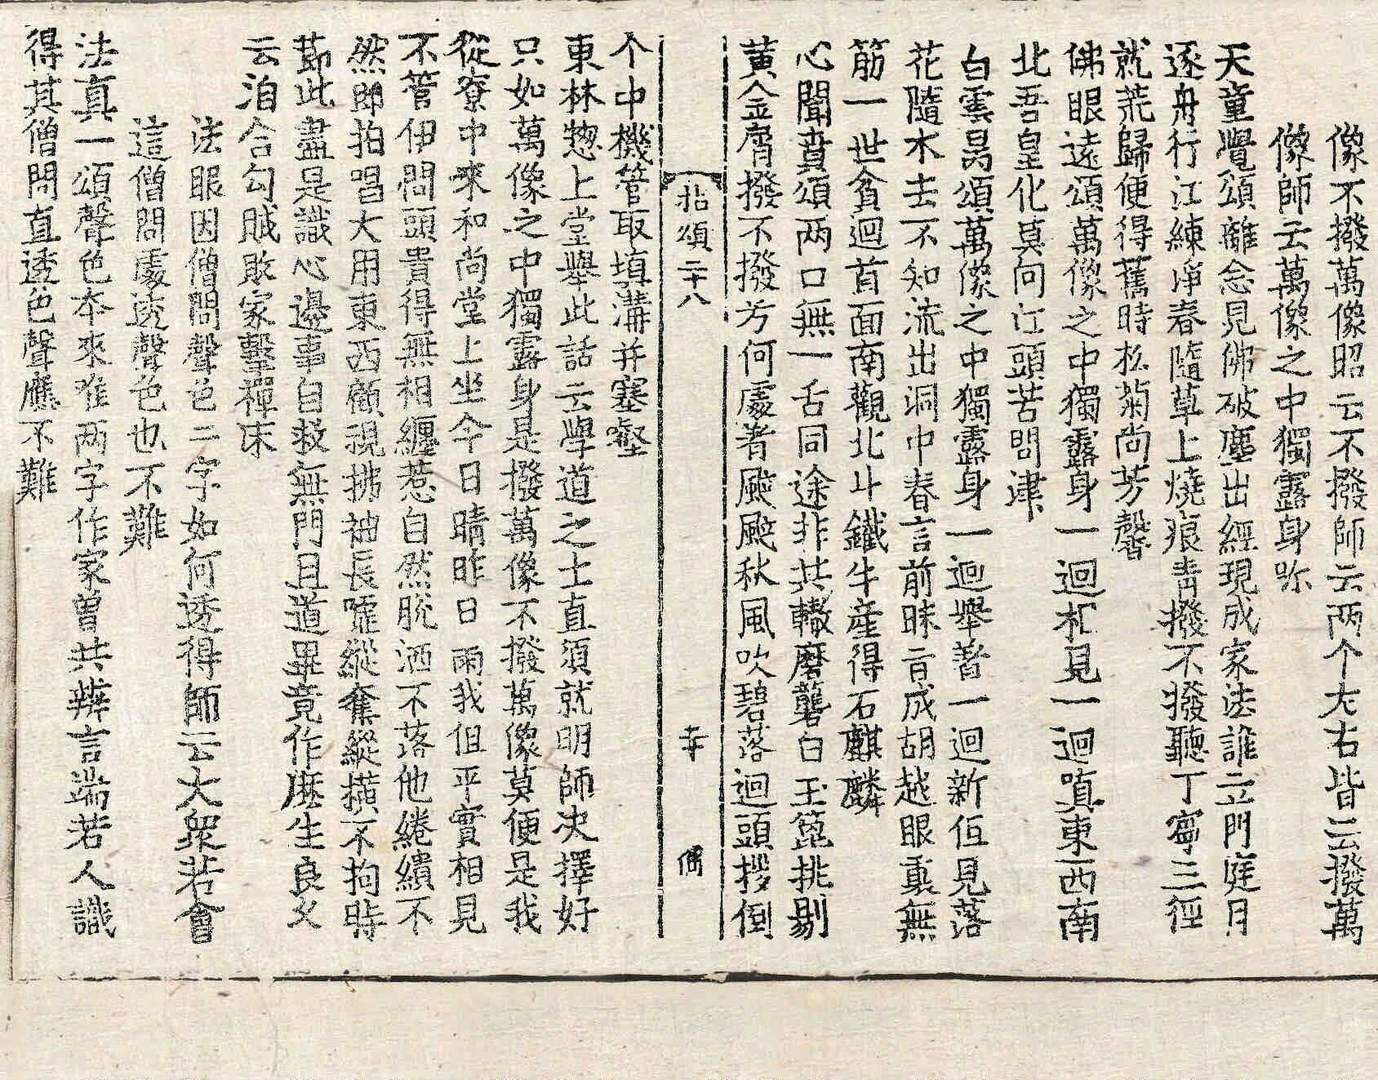 像不撥萬像昭云不撥師云两个左右皆云撥萬
像師云萬像之中獨露身聻
天童覺頌離念見佛破塵出經現成家法誰立門庭月
逐舟行江練净春隨草上燒痕青撥不撥聽丁寧三徑
就荒歸便得舊時松菊尚芳馨
佛眼遠頌萬像之中獨露身一迴相見一迴嗔東西南
北吾皇化莫向江頭苦問津
白雲昺頌萬像之中獨露身一迴舉著一迴新伹見落
花隨水去不知流出洞中春言前昧㫖成胡越眼裏無
筋一世貧迴首面南觀北斗鐵牛產得石麒麟
心聞賁頌两口無一舌同途非共轍磨礱白玉篦挑剔
黄金屑撥不撥芳何處著颼颼秋風吹碧落迴頭拶倒
拈頌二十八 幸 僑
个中機管取填溝并塞壑
東林惣上堂舉此話云學道之士直須就明師决擇好
只如萬像之中獨露身是撥萬像不撥萬像莫便是我
從寮中來和尚堂上坐今日晴昨日雨我伹平實相見
不管伊問頭貴得無相纏惹自然脫洒不落他綣繢不
然即拍唱大用東西顧視拂袖長嘘縱奪縱横不拘時
莭此盡是識心邊事自救無門且道畢竟作麽生良久
云洎合勾賊敗家擊禪床
法眼因僧問聲色二字如何透得師云大衆若會
這僧問處透聲色也不難
法真一頌聲色夲來唯两字作家曽共辨言端若人識
得其僧問直透色聲應不難